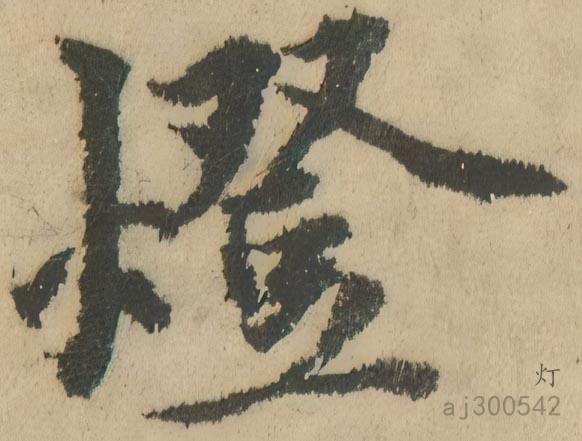 燈
灯
aj300542